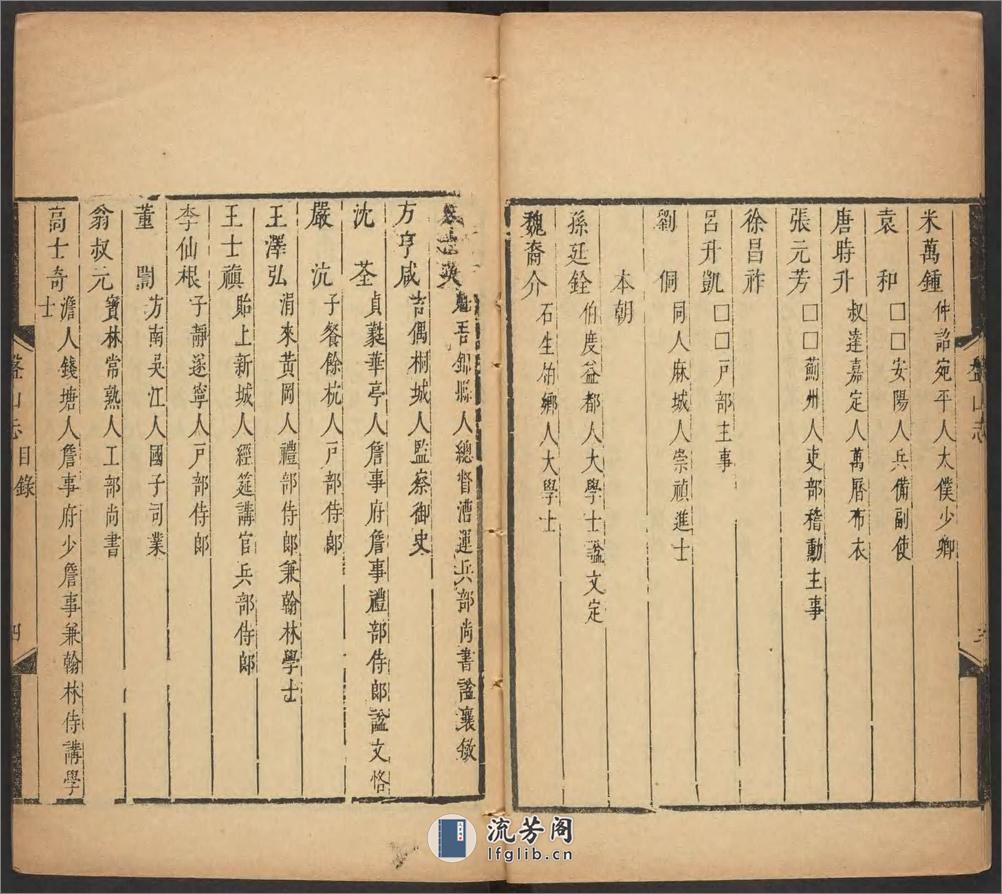 米萬鍾 仲詔宛平人太僕少卿
袁和 □□安陽人兵備副使
唐時升 叔達嘉定人萬曆布衣
張元芳 □□薊州人吏部稽勳主事
徐昌祚
呂升凱 □□戸部主事
劉侗 同人麻城人崇禎進士
本朝
孫廷銓 伯度益都人大學士諡文定
魏裔介 石生柏鄉人大學士
盤山志
人總督漕運兵部尚書諡襄敏
方亨咸 吉偶桐城人監察御史
沈荃 貞蕤華亭人詹事府詹事禮部侍郎諡文恪
嚴沆 子餐餘杭人戸部侍郎
王澤弘 涓來黃岡人禮部侍郎兼翰林學士
王士禛 貽上新城人經筵講官兵部侍郎
李仙根 子靜遂寧人戸部侍郎
董誾 方南吳江人國子司業
翁叔元 寶林常熟人工部尚書
高士奇 澹人錢塘人詹事府少詹事兼翰林侍講學
士
盤山志 目錄 四
流芳阁
lfglib.cn